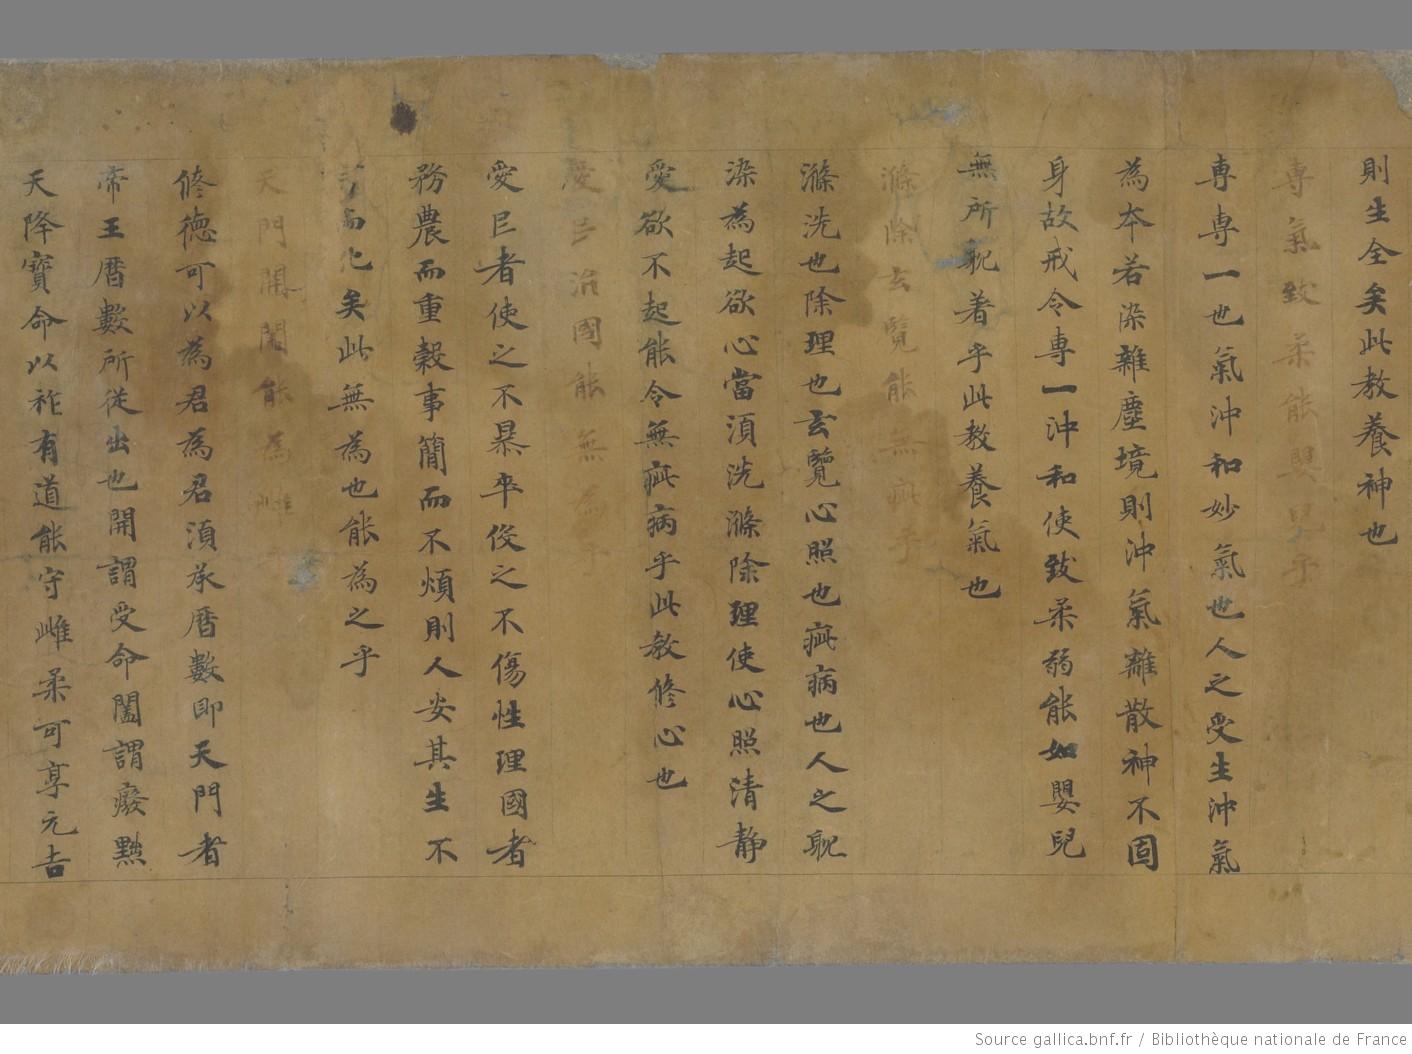 則生全矣此教養神也
専氣致柔能嬰兒乎
専専一也氣沖和妙氣也人之受生沖氣
為本若染雜塵境則沖氣離散神不固
身故戒令専一沖和使致柔弱能如嬰兒
無所躭著乎此教養氣也
滌除玄覽能無疵乎
滌洗也除理也玄覽心照也疵病也人之躭
染為起欲心當湏洗滌除理使心照清静
愛欲不起能令無疵病乎此教修心也
愛民治國能無為乎
愛民者使之不暴卒役之不傷性理國者
務農而重穀事簡而不煩則人安其生不
言而化矣此無為也能為之乎
天門開闔能為雌
修德可以為君為君湏承曆數即天門者
帝王曆數所從出也開謂受命闔謂癈黜
天降寶命以祚有道能守雌柔可享元吉
Source gallica.bnf.fr / Bibliothèque nationale de France